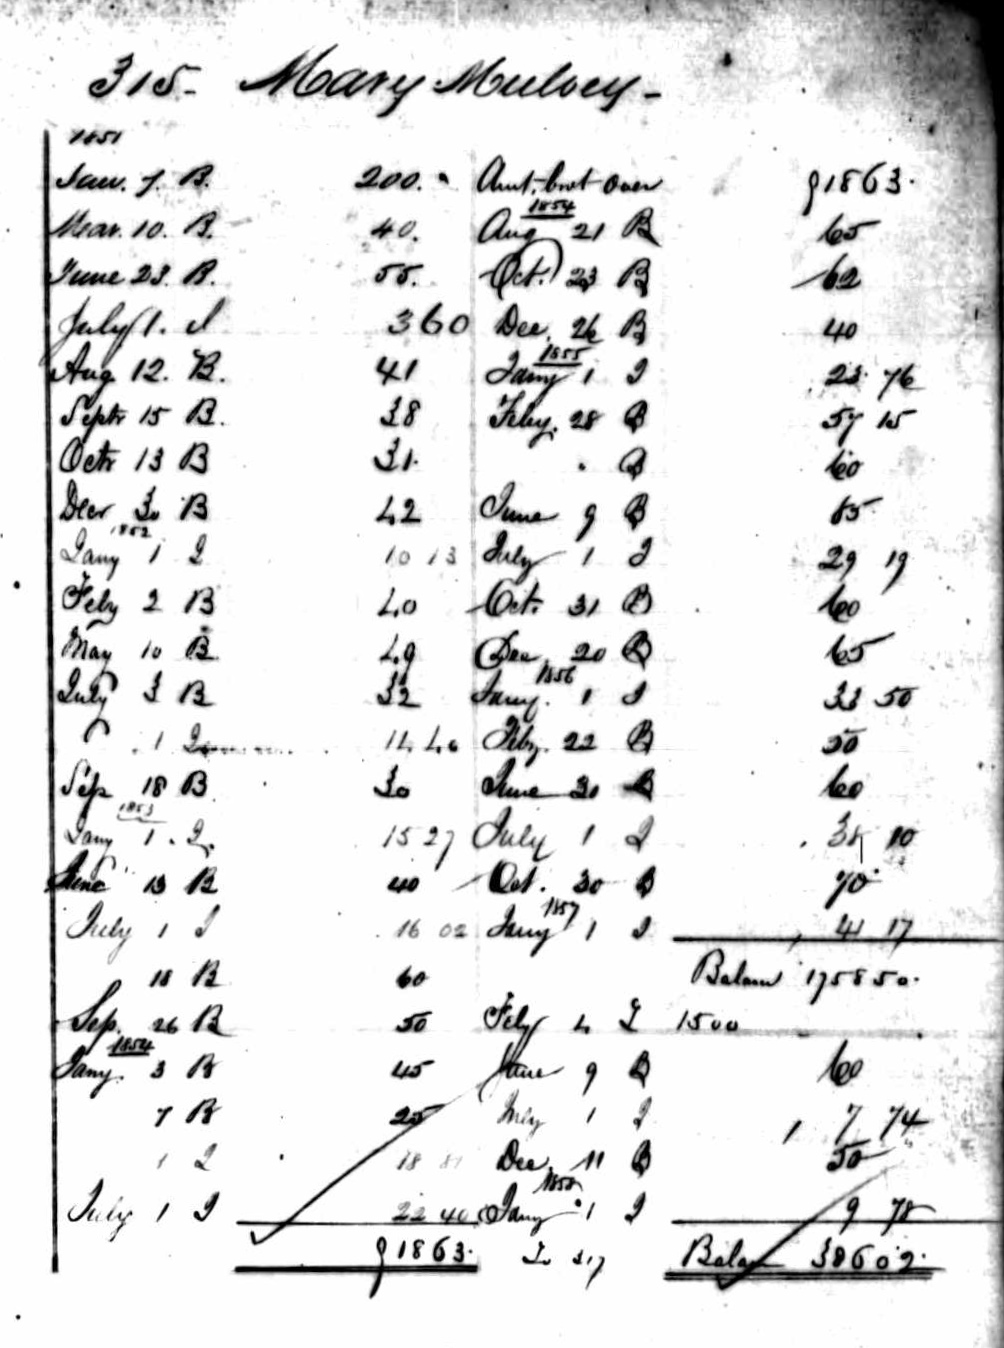 315- Mary Mulvey-
1851
Jan. 7. B. 200.
Mar. 10. B. 40.
June 23. B. 55.
July 1. I 3 60
Aug 12. B. 41
Septr 15 B. 38
Octr 13 B 31.
Decr 30 B 42
1852
Jany 1 I 10 13
Feby 2 B 40
May 10 B. 49
July 3 B 32
1 I 14 40
Sep 18 B 30
1853
Jany 1. I. 15 27
June 13 B 40
July 1 I 16 02
18 B 60
Sep. 26 B 50
1854
Jany. 3 B 45
7 B 25
1 I 18 81
July 1 I 22 40
9 1863.
Amt. brot over 91863.
1854
Aug 21 B 65
Oct. 23 B 62
Dec. 26 B 40
1855
Jany 1 I 23 76
Feby. 28 B 57 15
B 60
June 9 B 65
July 1 I 29 19
Oct. 31 B 60
Dec. 20 B 65
1856
Jany. 1 I 33 50
Feby. 22 B 50
June 30 B 60
July 1 I 38 10
Oct. 30 B 70
1857
Jany 1 I 41 17
Balan 1758 50.
Feby 4 I 1500
June 9 B 60
July 1 I 7 74
Dec. 11 B 50
1858
Jany 1 I 9 78
To 317 Balan 386 02.